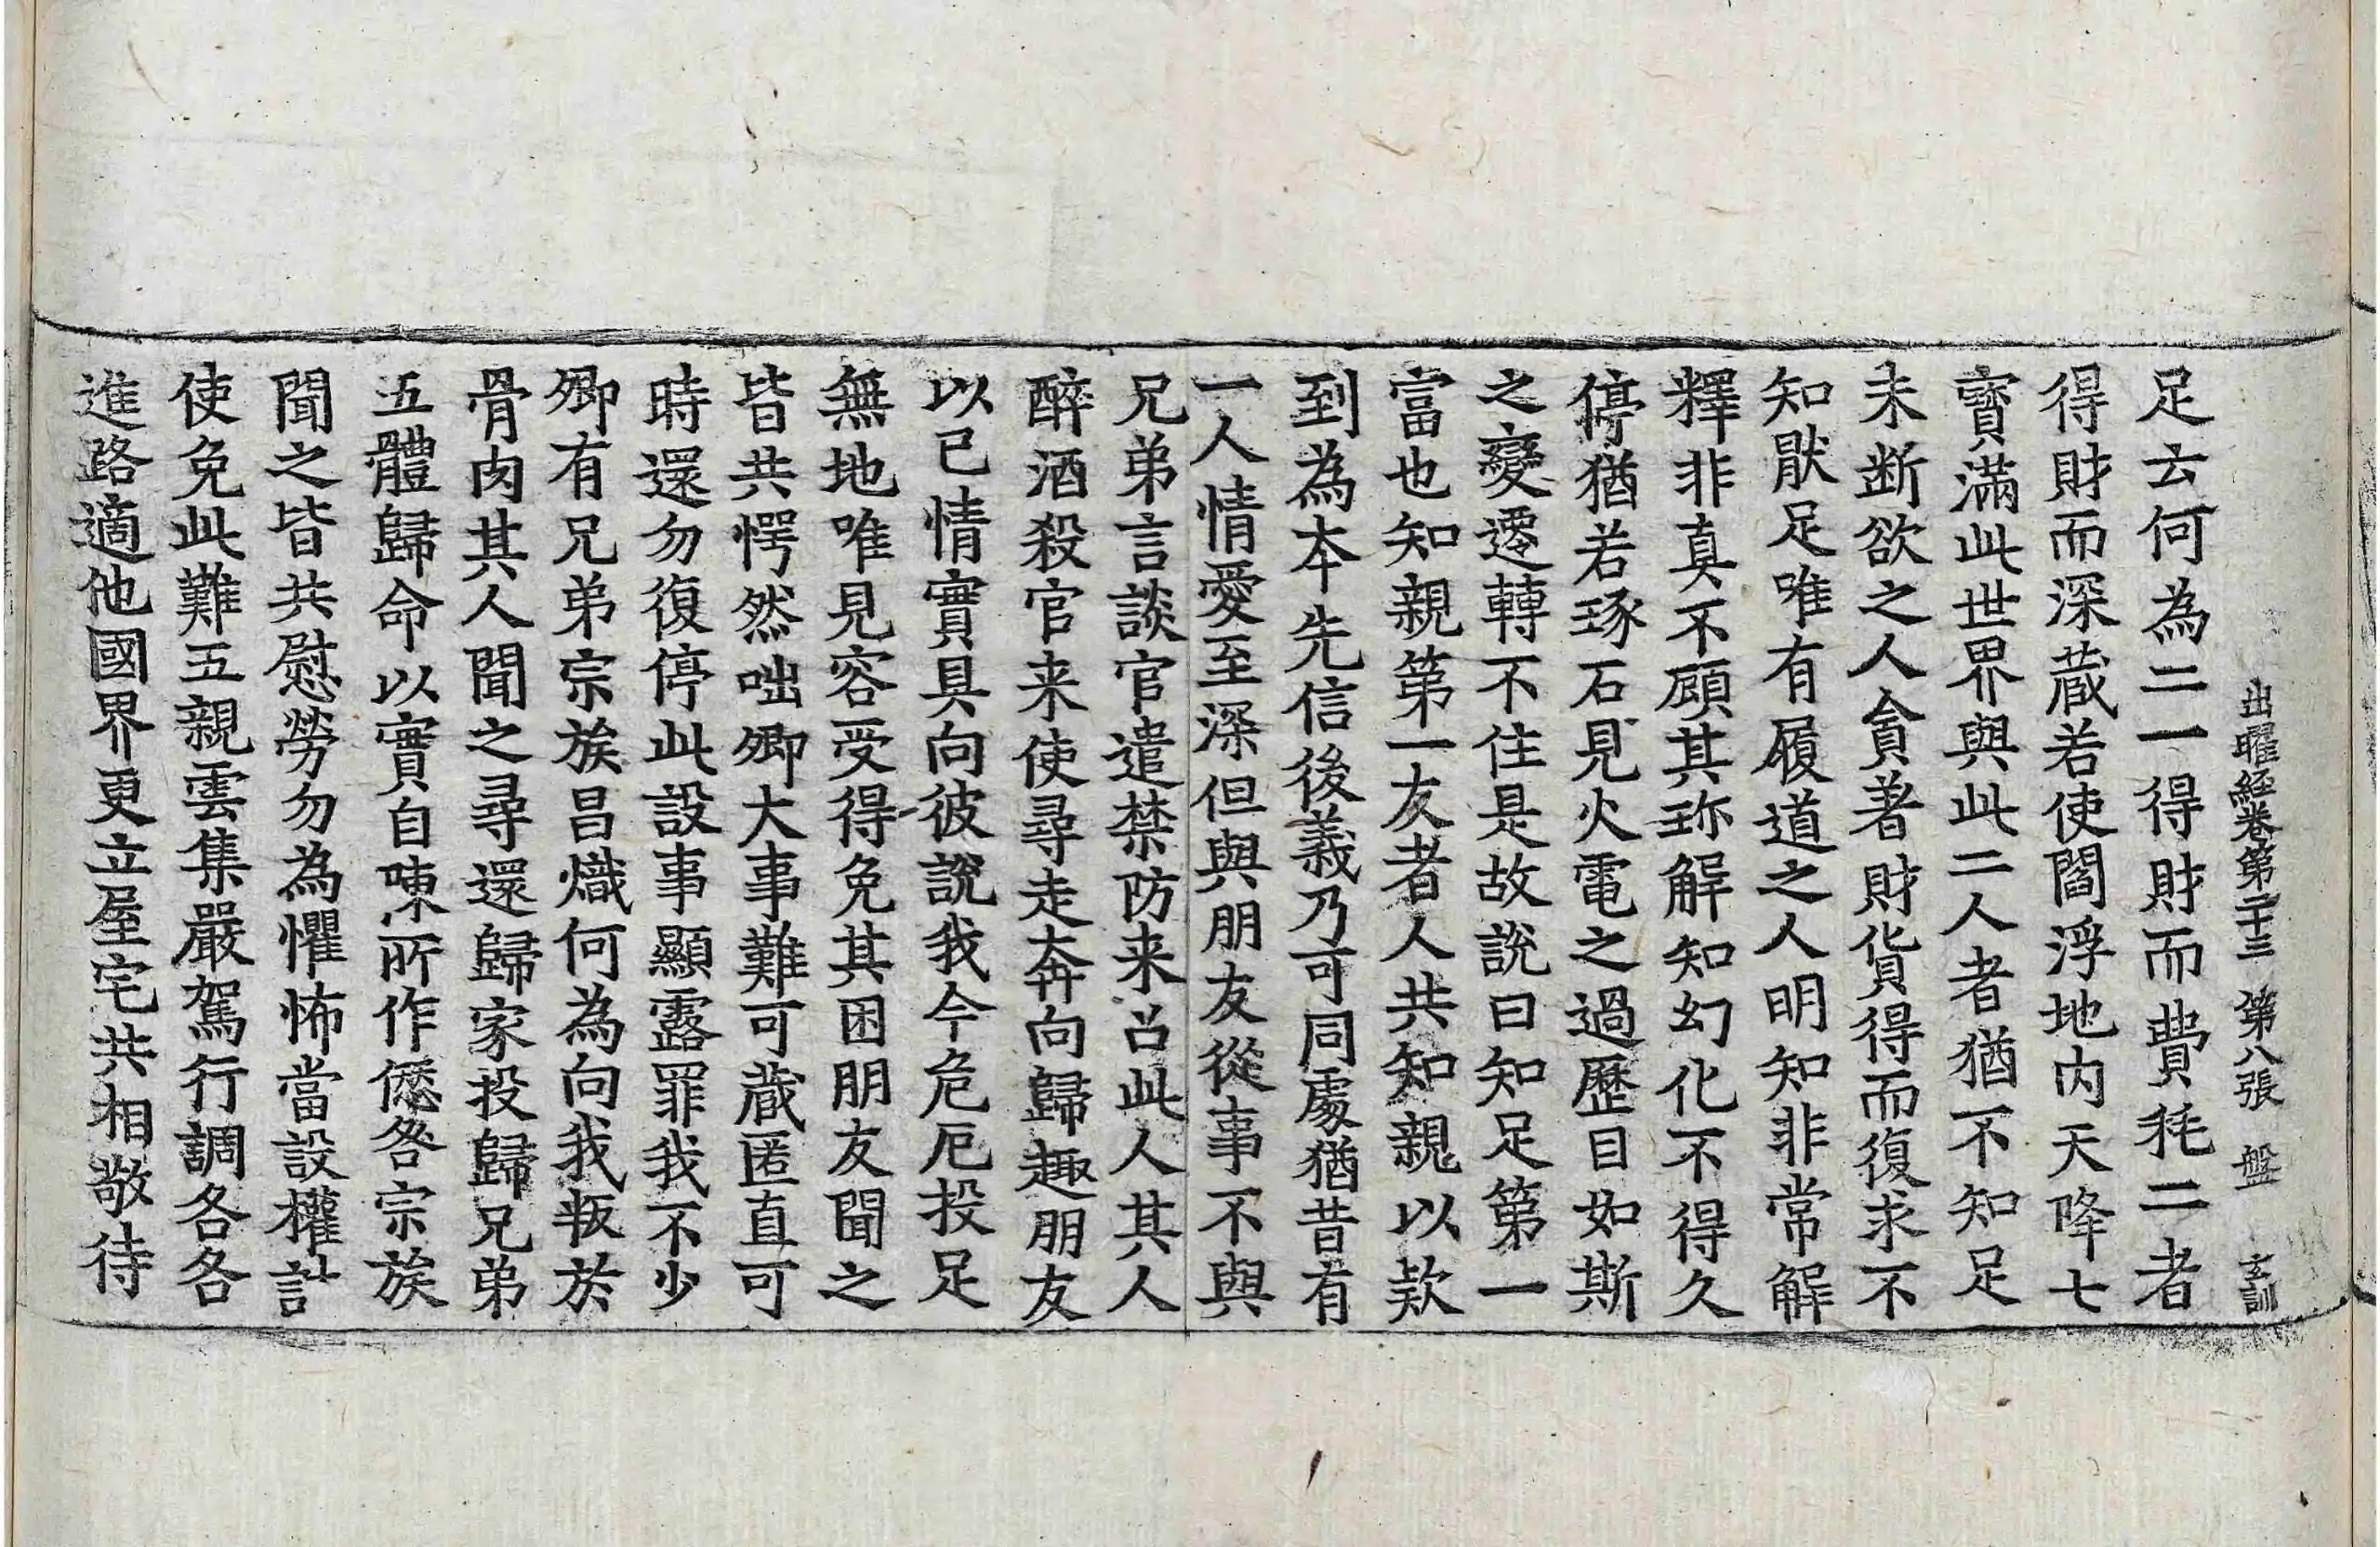 出曜經卷第二十三 第八張 盤 玄訓
足云何為二一得財而費耗二者
得財而深蔵若使閻浮地內天降七
寳滿此世界與此二人者猶不知足
未断欲之人貪著財貨得而復求不
知猒足唯有履道之人明知非常解
釋非真不顧其珎解知幻化不得久
停猶若琢石見火電之過歷目如斯
之變遷轉不住是故說曰知足第一
富也知親第一友者人共知親以款
到為本先信後義乃可同處猶昔有
一人情愛至深但與朋友從事不與
兄弟言談官遣禁防来召此人其人
醉酒殺官来使尋走奔向歸趣朋友
以已情實具向彼說我今危厄投足
無地唯見容受得免其困朋友聞之
皆共愕然咄卿大事難可蔵匿直可
時還勿復停此設事顯露罪我不少
卿有兄弟宗族昌熾何為向我叛於
骨肉其人聞之尋還歸家投歸兄弟
五體歸命以實自陳所作𠎝咎宗族
聞之皆共慰勞勿為懼怖當設權計
使免此難五親雲集嚴駕行調各各
進路適他國界更立屋宅共相敬待